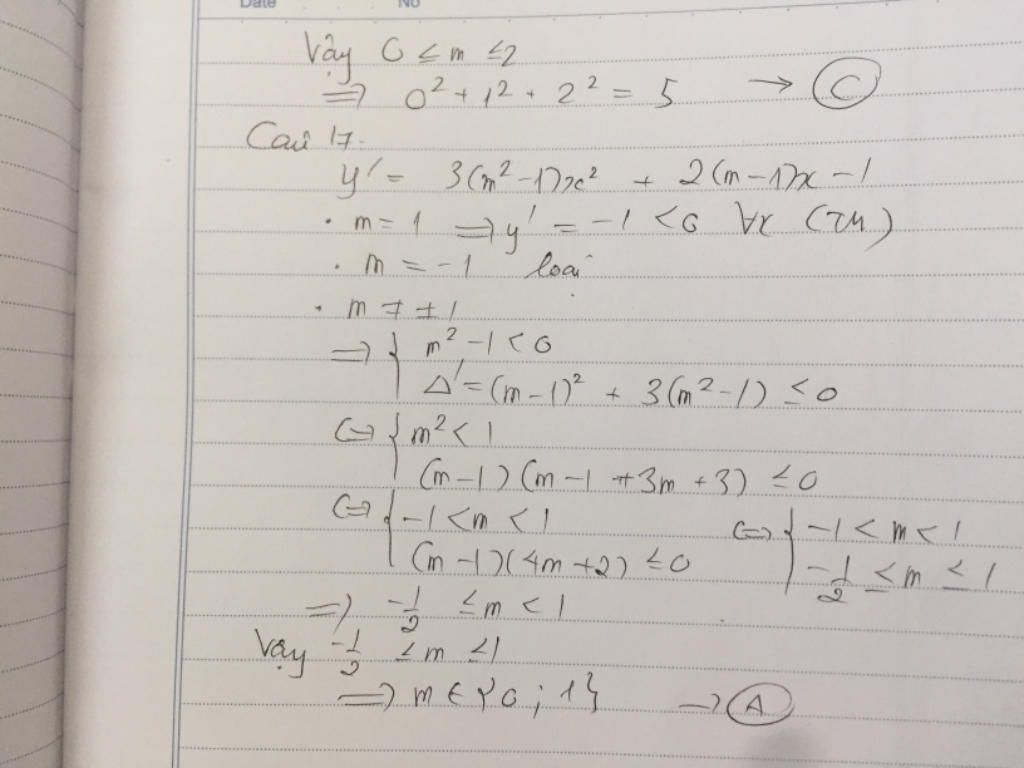 Date No
Vậy 0 ≤ m ≤ 2
⇒ 0² + 1² + 2² = 5 → C
Câu 17.
y' = 3(m² - 1)x² + 2(m - 1)x - 1
· m = 1 ⇒ y' = -1 < 0 ∀x (TM)
· m = -1 loại
· m ≠ ±1
⇒ { m² - 1 < 0
Δ' = (m - 1)² + 3(m² - 1) ≤ 0
⇔ { m² < 1
(m - 1)(m - 1 + 3m + 3) ≤ 0
⇔ { -1 < m < 1 ⇔ { -1 < m < 1
(m - 1)(4m + 2) ≤ 0 -1/2 ≤ m ≤ 1
⇒ -1/2 ≤ m < 1
Vậy -1/2 ≤ m ≤ 1
⇒ m ∈ {0 ; 1} → A